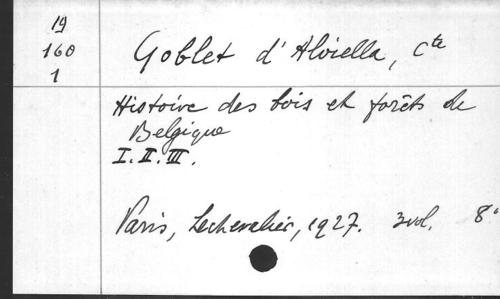 19
160
1
Goblet d'Alviella, Cte
Histoire des bois et forêts de
Belgique
I. II. III.
Paris, Lechevalier, 1927. 3 vol. 8°